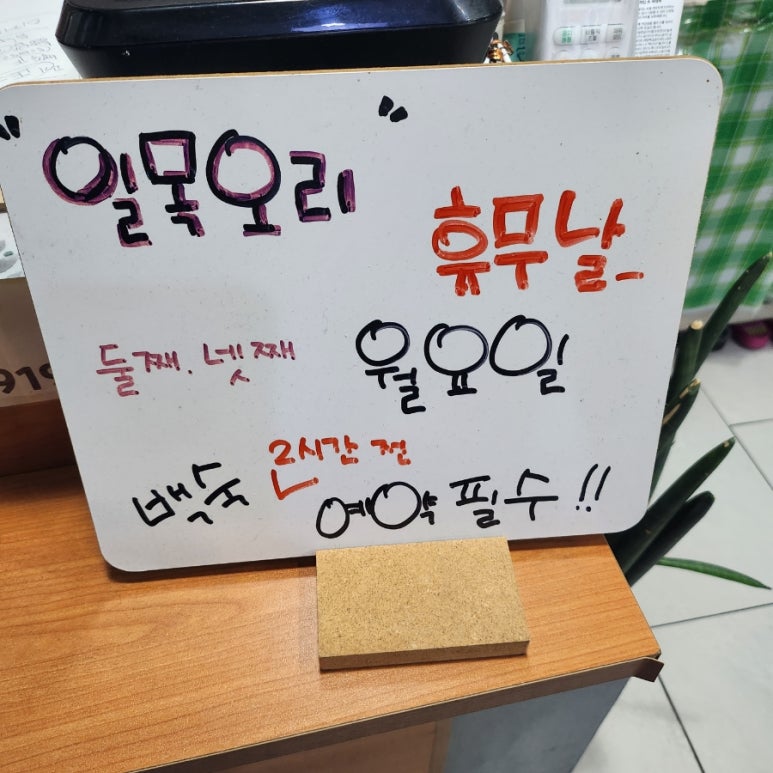 "일목오리"
휴무날_
둘째. 넷째 월요일
2시간 전
백숙 예약 필수!!
919